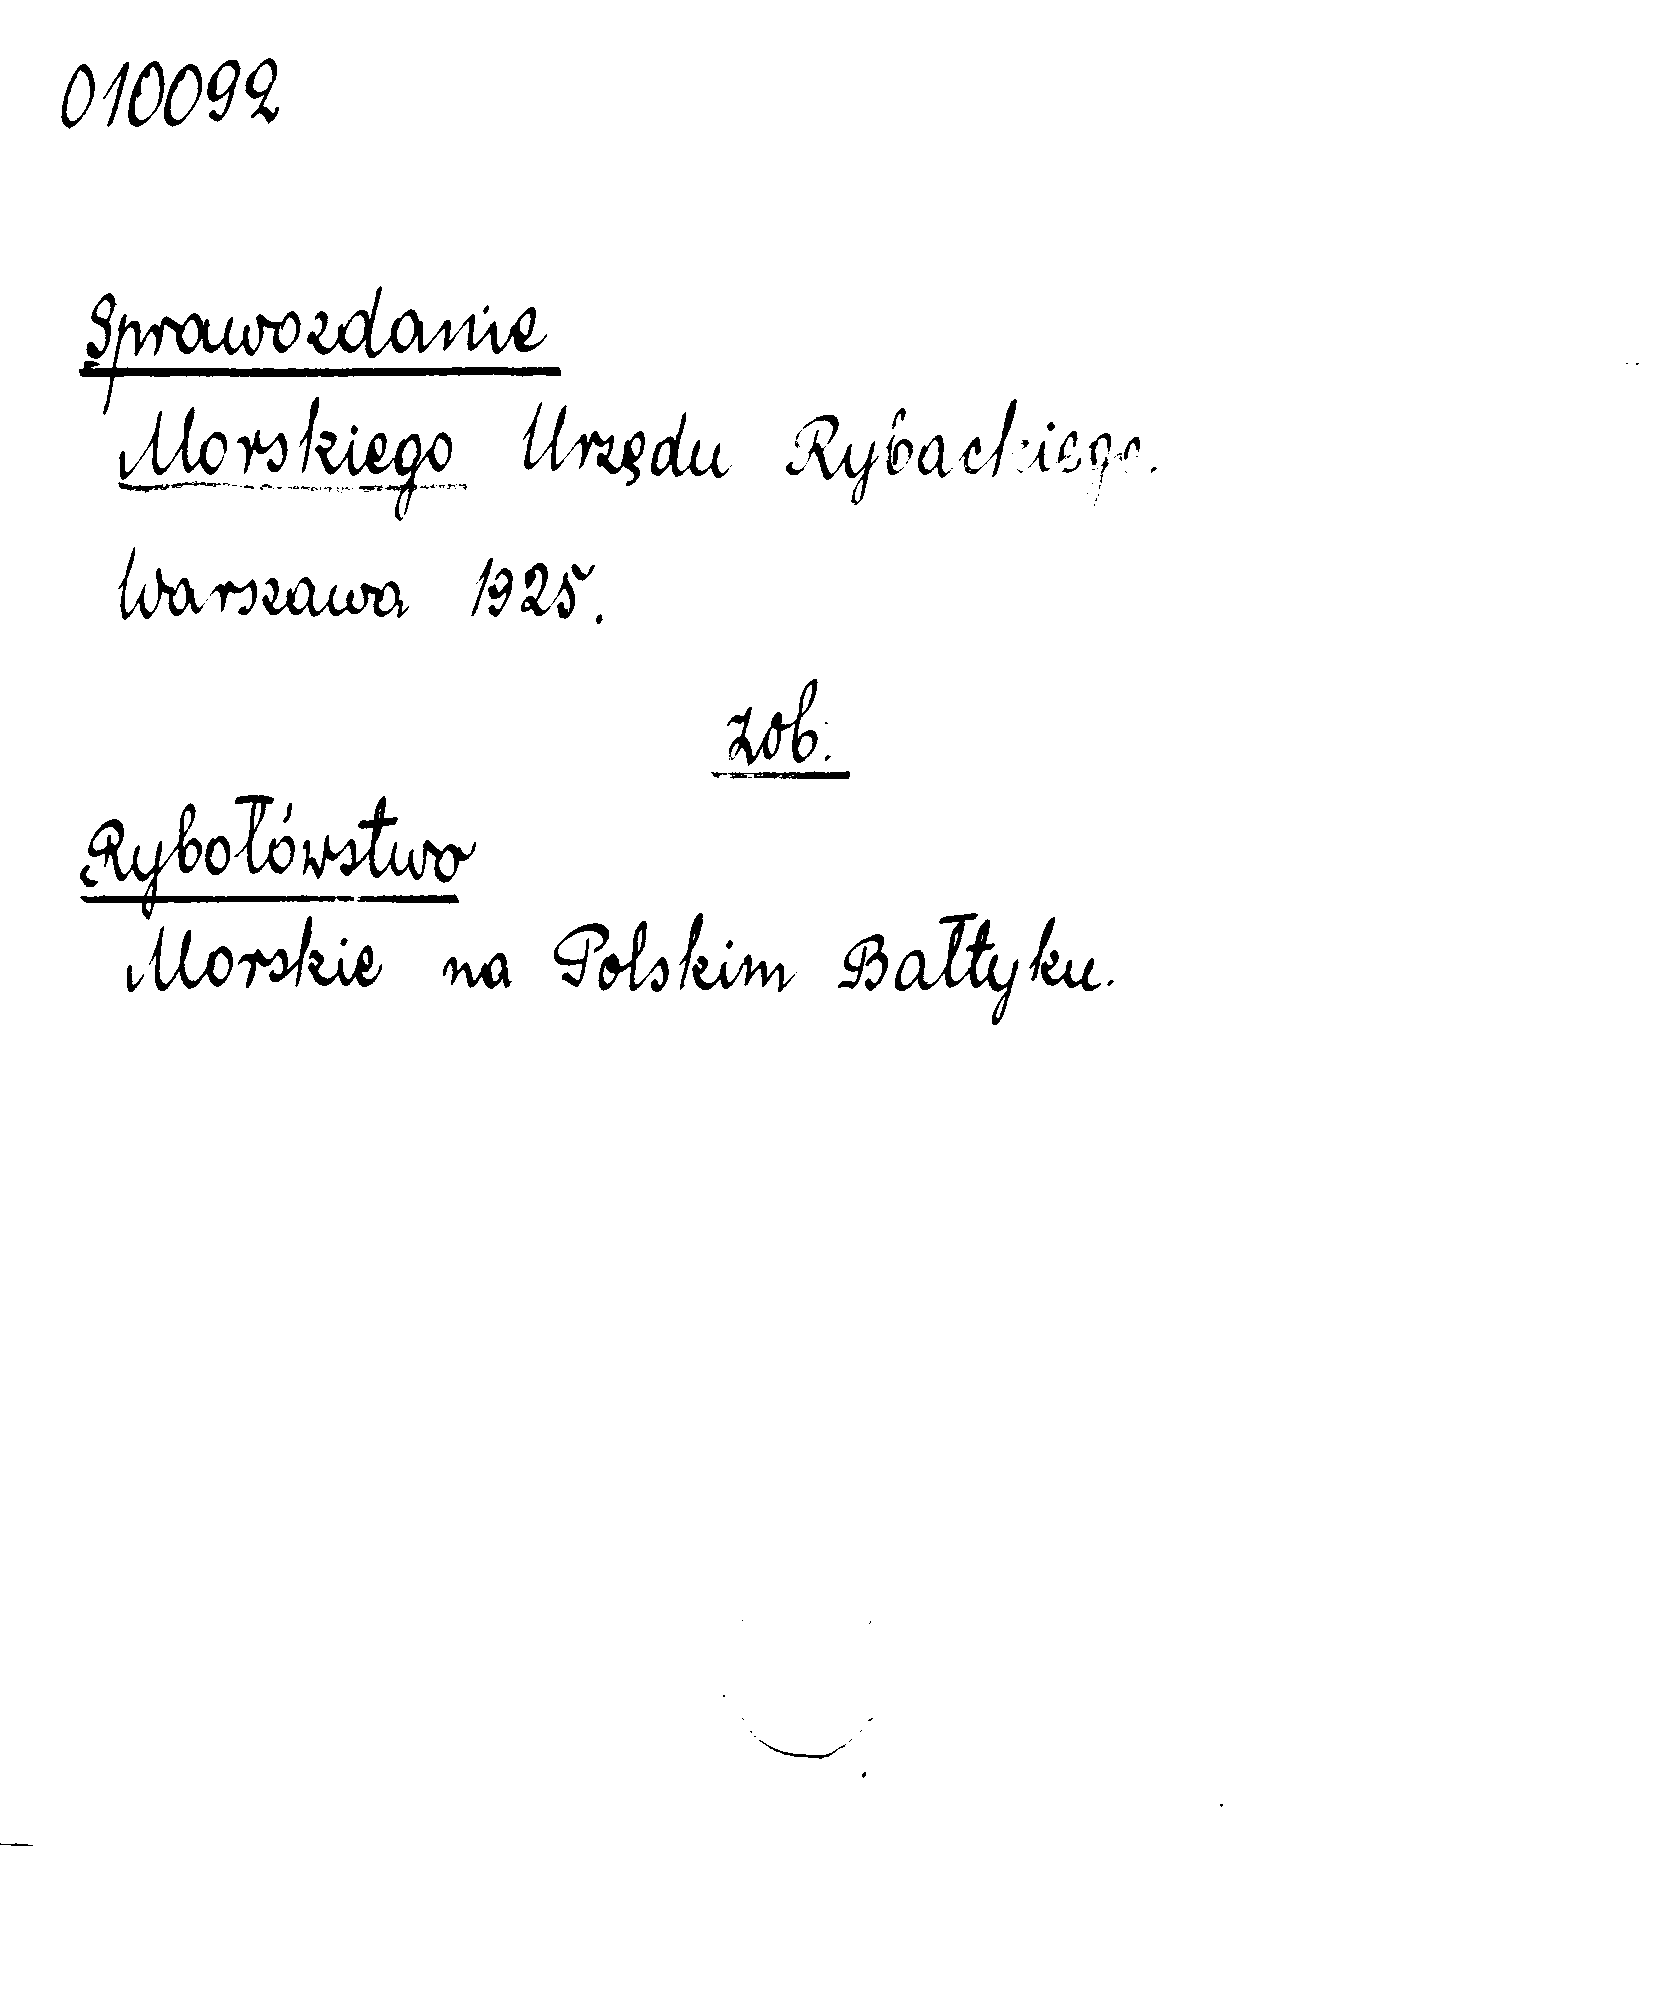 010092
Sprawozdanie
Morskiego Urzędu Rybackiego.
Warszawa 1925.
zob.
Rybołówstwo
Morskie na Polskim Bałtyku.